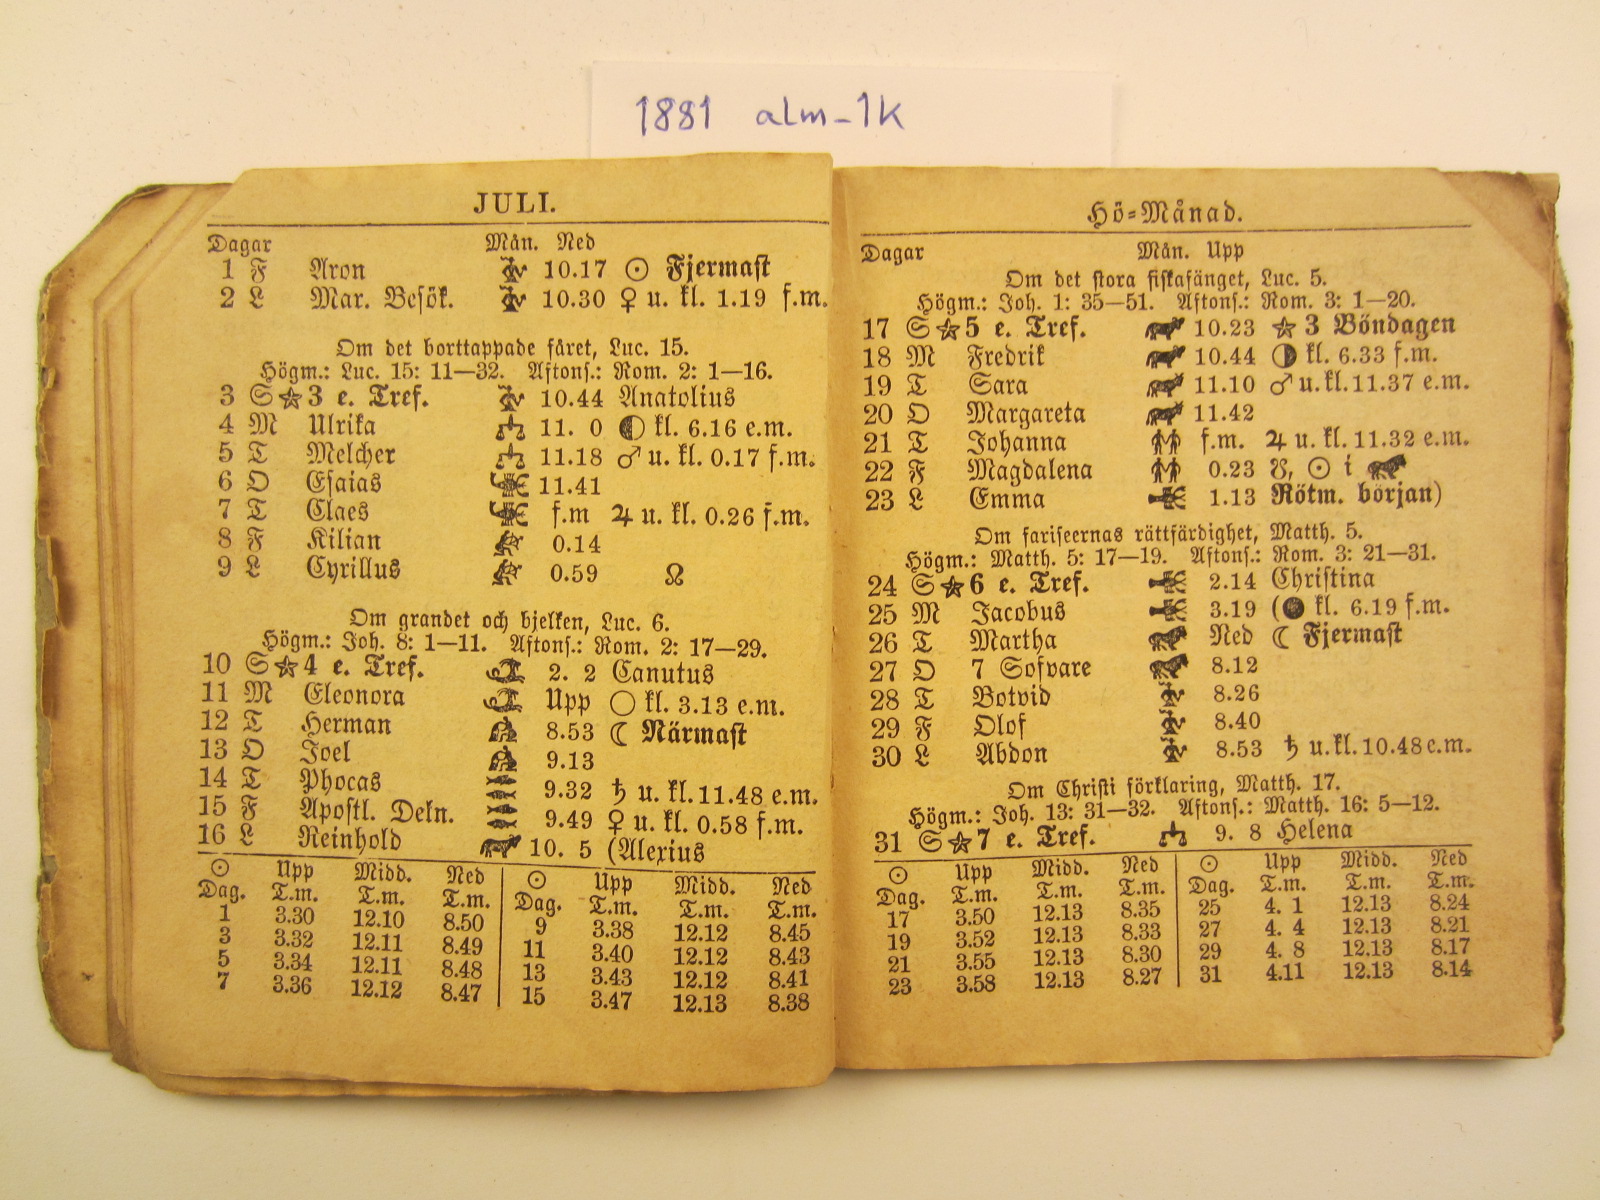 1881 alm-1k
JULI.
Dagar Mån. Ned
1 F Aron 10.17 ☉ Fjermast
2 L Mar. Besök. 10.30 ♀ u. kl. 1.19 f.m.
Om det borttappade fåret, Luc. 15.
Högm.: Luc. 15: 11—32. Aftons.: Rom. 2: 1—16.
3 S ☆ 3 e. Tref. 10.44 Anatolius
4 M Ulrika 11. 0 ◐ kl. 6.16 e.m.
5 T Melcher 11.18 ♂ u. kl. 0.17 f.m.
6 O Esaias 11.41
7 T Claes f.m ♃ u. kl. 0.26 f.m.
8 F Kilian 0.14
9 L Cyrillus 0.59 ☊
Om grandet och bjelken, Luc. 6.
Högm.: Joh. 8: 1—11. Aftons.: Rom. 2: 17—29.
10 S ☆ 4 e. Tref. 2. 2 Canutus
11 M Eleonora Upp ○ kl. 3.13 e.m.
12 T Herman 8.53 ☾ Närmast
13 O Joel 9.13
14 T Phocas 9.32 ♄ u. kl. 11.48 e.m.
15 F Apostl. Deln. 9.49 ♀ u. kl. 0.58 f.m.
16 L Reinhold 10. 5 (Alexius
☉ Upp Midd. Ned ☉ Upp Midd. Ned
Dag. T.m. T.m. T.m. Dag. T.m. T.m. T.m.
1 3.30 12.10 8.50 9 3.38 12.12 8.45
3 3.32 12.11 8.49 11 3.40 12.12 8.43
5 3.34 12.11 8.48 13 3.43 12.12 8.41
7 3.36 12.12 8.47 15 3.47 12.13 8.38
Hö-Månad.
Dagar Mån. Upp
Om det stora fiskafänget, Luc. 5.
Högm.: Joh. 1: 35—51. Aftons.: Rom. 3: 1—20.
17 S ☆ 5 e. Tref. 10.23 ☆ 3 Böndagen
18 M Fredrik 10.44 ◑ kl. 6.33 f.m.
19 T Sara 11.10 ♂ u. kl. 11.37 e.m.
20 O Margareta 11.42
21 T Johanna f.m. ♃ u. kl. 11.32 e.m.
22 F Magdalena 0.23 ☋, ☉ i ♌
23 L Emma 1.13 Rötm. början)
Om fariseernas rättfärdighet, Matth. 5.
Högm.: Matth. 5: 17—19. Aftons.: Rom. 3: 21—31.
24 S ☆ 6 e. Tref. 2.14 Christina
25 M Jacobus 3.19 (● kl. 6.19 f.m.
26 T Martha Ned ☾ Fjermast
27 O 7 Sofvare 8.12
28 T Botvid 8.26
29 F Olof 8.40
30 L Abdon 8.53 ♄ u. kl. 10.48 e.m.
Om Christi förklaring, Matth. 17.
Högm.: Joh. 13: 31—32. Aftons.: Matth. 16: 5—12.
31 S ☆ 7 e. Tref. 9. 8 Helena
☉ Upp Midd. Ned ☉ Upp Midd. Ned
Dag. T.m. T.m. T.m. Dag. T.m. T.m. T.m.
17 3.50 12.13 8.35 25 4. 1 12.13 8.24
19 3.52 12.13 8.33 27 4. 4 12.13 8.21
21 3.55 12.13 8.30 29 4. 8 12.13 8.17
23 3.58 12.13 8.27 31 4.11 12.13 8.14